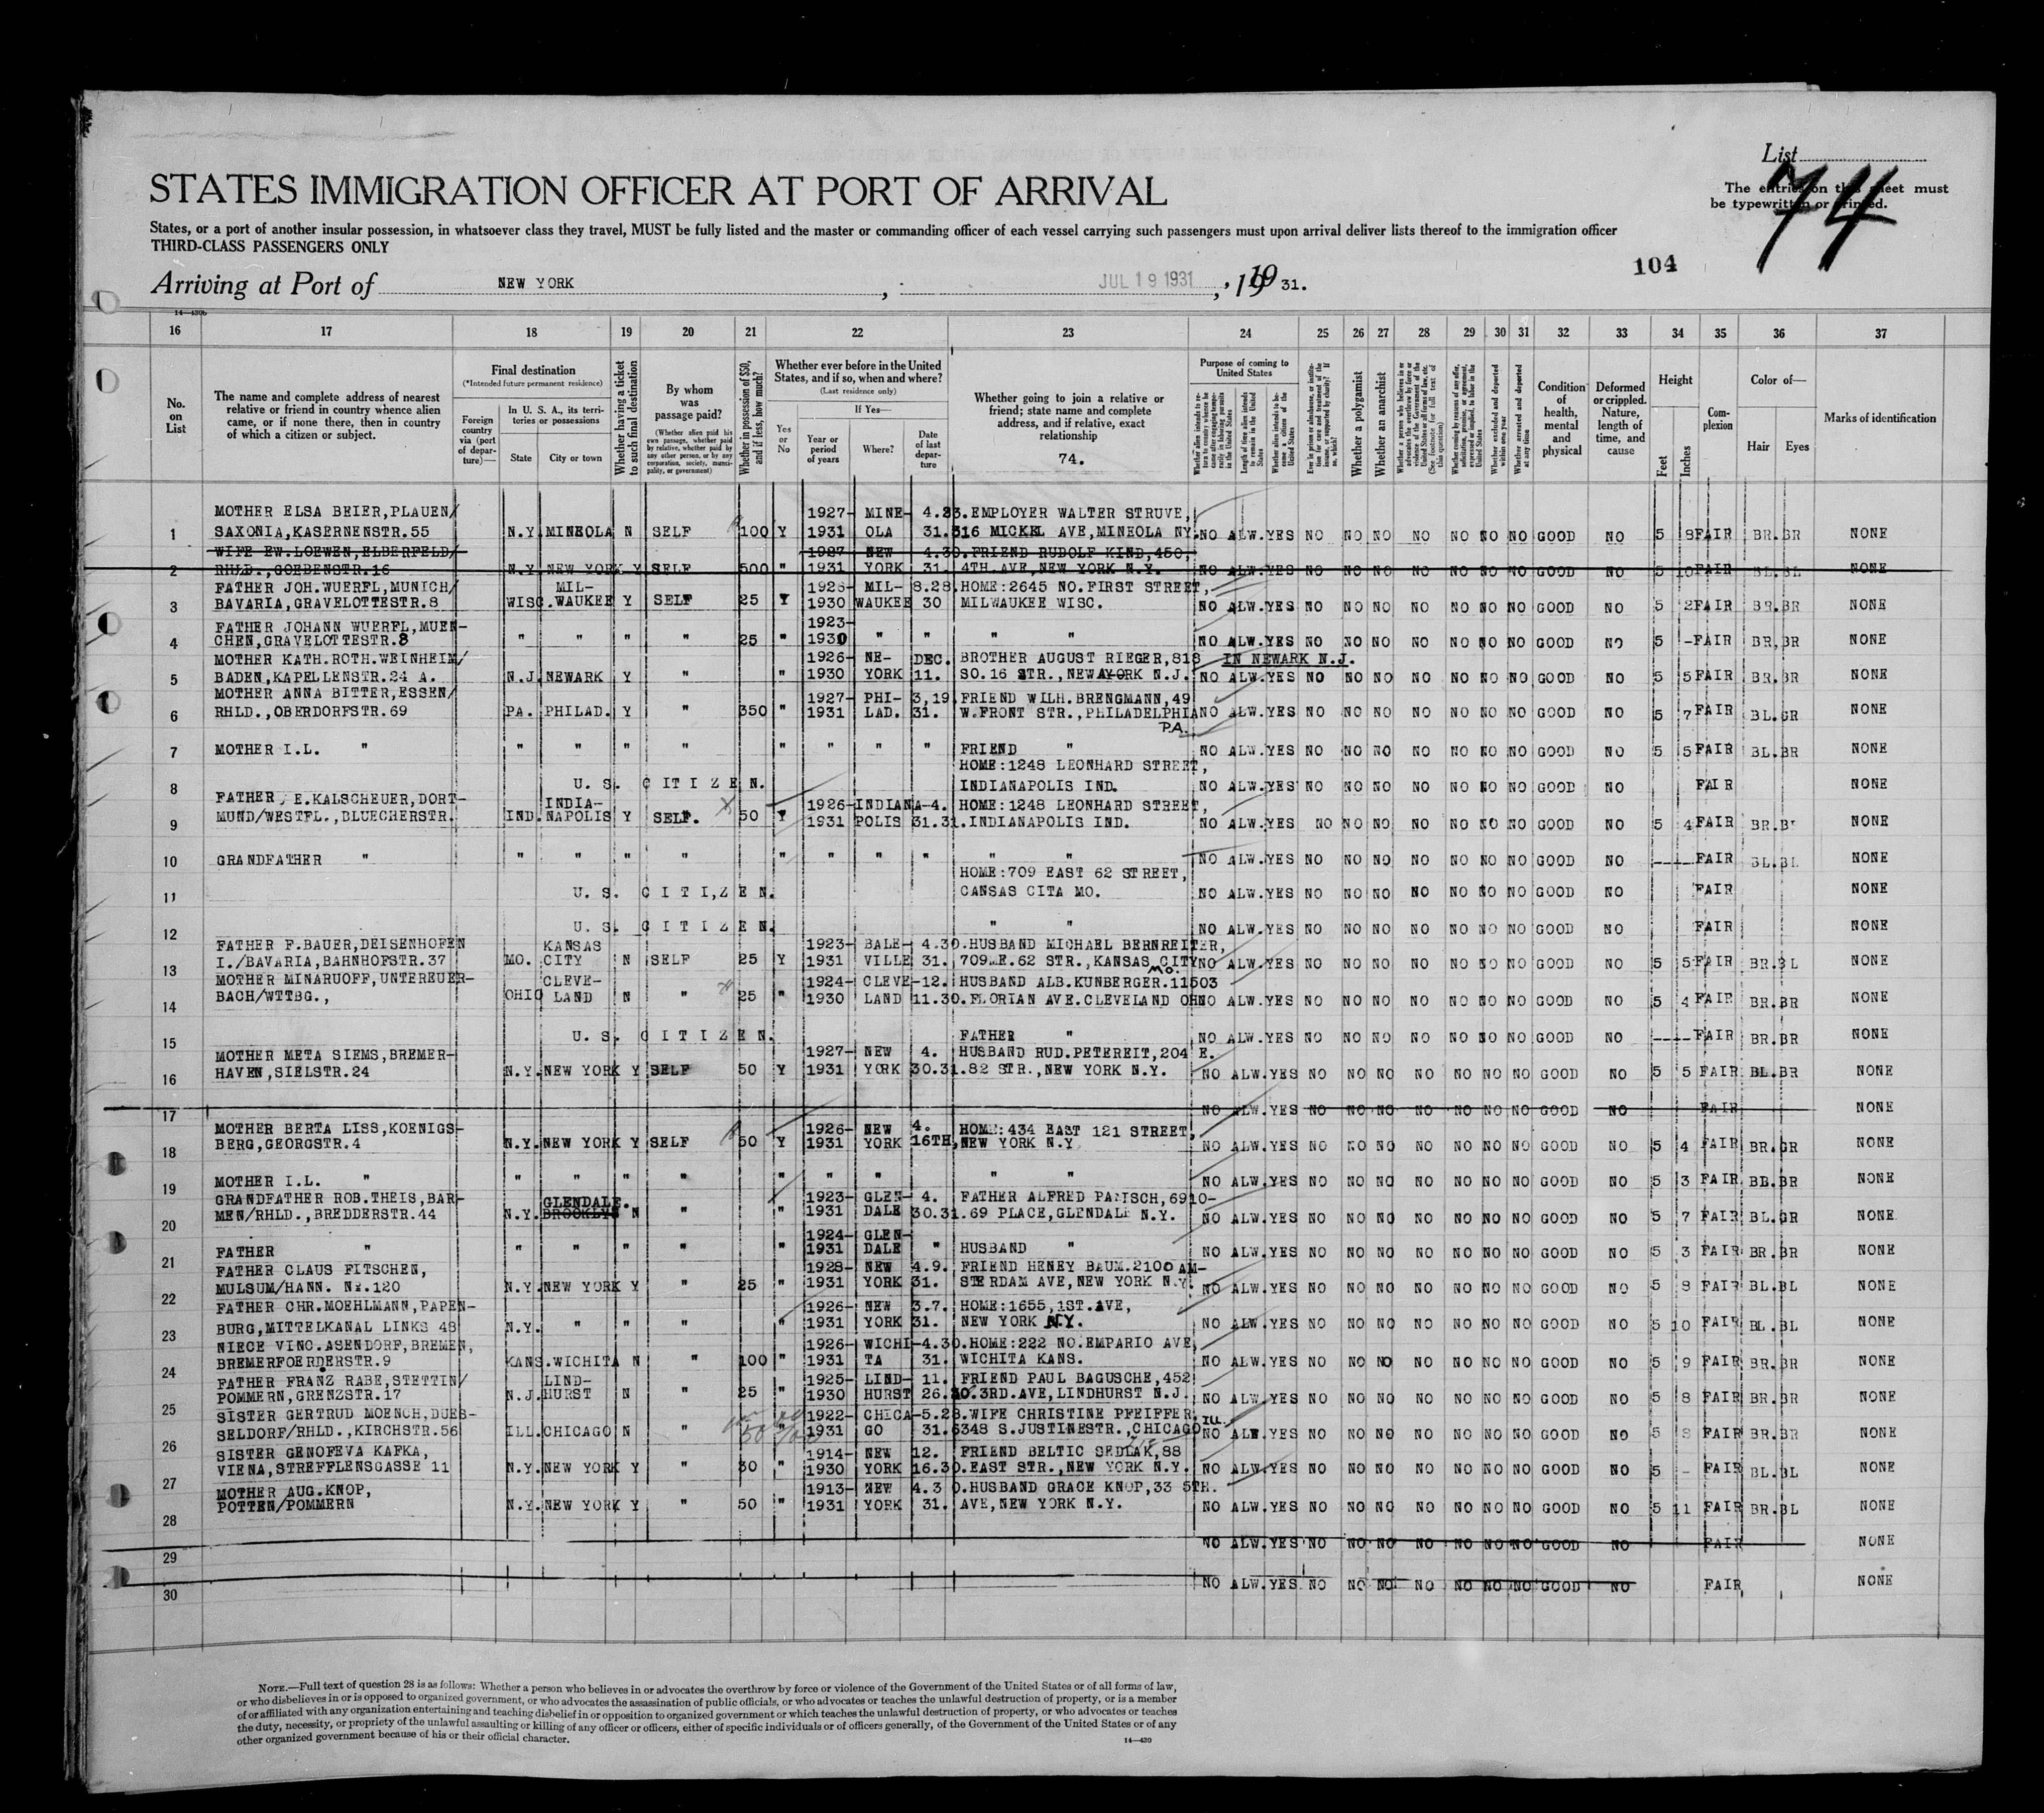 List
74
The entries on this sheet must
be typewritten or printed.
STATES IMMIGRATION OFFICER AT PORT OF ARRIVAL
States, or a port of another insular possession, in whatsoever class they travel, MUST be fully listed and the master or commanding officer of each vessel carrying such passengers must upon arrival deliver lists thereof to the immigration officer
THIRD-CLASS PASSENGERS ONLY
104
Arriving at Port of NEW YORK, JUL 19 1931, 1931.
14—430b
16 17 18 19 20 21 22 23 24 25 26 27 28 29 30 31 32 33 34 35 36 37
No. on List
The name and complete address of nearest
relative or friend in country whence alien
came, or if none there, then in country
of which a citizen or subject.
Final destination
(*Intended future permanent residence)
Foreign country via (port of departure)—
In U. S. A., its territories or possessions
State
City or town
Whether having a ticket to such final destination
By whom was passage paid?
(Whether alien paid his own passage, whether paid by relative, whether paid by any other person, or by any corporation, society, municipality, or government)
Whether in possession of $50, and if less, how much?
Whether ever before in the United
States, and if so, when and where?
(Last residence only)
Yes or No
If Yes—
Year or period of years
Where?
Date of last departure
Whether going to join a relative or
friend; state name and complete
address, and if relative, exact
relationship
74.
Purpose of coming to United States
Length of time alien intends to remain in the United States
Whether alien intends to become a citizen of the United States
Whether a polygamist
Whether an anarchist
Whether excluded and deported within one year
Whether arrested and deported at any time
Condition of health, mental and physical
Deformed or crippled. Nature, length of time, and cause
Height
Feet
Inches
Complexion
Color of—
Hair
Eyes
Marks of identification
MOTHER ELSA BEIER,PLAUEN/ 1927- MINE- 4.23. EMPLOYER WALTER STRUVE,
1 SAXONIA,KASERNENSTR.55 N.Y. MINEOLA N SELF 100 Y 1931 OLA 31. 316 MICKEL AVE,MINEOLA NY. NO ALW. YES NO NO NO NO NO NO NO GOOD NO 5 8 FAIR BR.BR NONE
WIFE EW.LOEWEN,ELBERFELD/ 1927 NEW 4.30. FRIEND RUDOLF KIND,450,
2 RHLD.,GOEBENSTR.16 N.Y. NEW YORK Y SELF 500 " 1931 YORK 31. 4TH AVE,NEW YORK N.Y. NO ALW. YES NO NO NO NO NO NO NO GOOD NO 5 10 FAIR BL.BL NONE
FATHER JOH.WUERFL,MUNICH/ MIL- MIL- 8.28. HOME:2645 NO.FIRST STREET,
3 BAVARIA,GRAVELOTTESTR.8 WISC. WAUKEE Y SELF 25 Y 1930 WAUKEE 30 MILWAUKEE WISC. NO ALW. YES NO NO NO NO NO NO NO GOOD NO 5 2 FAIR BR.BR NONE
FATHER JOHANN WUERFL,MUEN- 1923-
4 CHEN,GRAVELOTTESTR.8 " " " " 25 " 1930 " " " " NO ALW. YES NO NO NO NO NO NO NO GOOD NO 5 - FAIR BR,BR NONE
MOTHER KATH.ROTH.WEINHEIM/ 1926- NE- DEC. BROTHER AUGUST RIEGER,818 IN NEWARK N.J.
5 BADEN,KAPELLENSTR.24 A. N.J. NEWARK Y " " 1930 YORK 11. SO.16 STR.,NEWAYORK N.J. NO ALW. YES NO NO NO NO NO NO NO GOOD NO 5 5 FAIR BR.BR NONE
MOTHER ANNA BITTER,ESSEN/ 1927- PHI- 3,19. FRIEND WILH.BRENGMANN,49
6 RHLD.,OBERDORFSTR.69 PA. PHILAD. Y " 350 " 1931 LAD. 31. W.FRONT STR.,PHILADELPHIA P.A. NO ALW. YES NO NO NO NO NO NO NO GOOD NO 5 7 FAIR BL.GR NONE
7 MOTHER I.L. " " " " " " " " " FRIEND " NO ALW. YES NO NO NO NO NO NO NO GOOD NO 5 5 FAIR BL.BR NONE
HOME:1248 LEONHARD STREET,
8 U. S. CITIZEN. INDIANAPOLIS IND. NO ALW. YES NO NO NO NO NO NO NO GOOD NO FAIR NONE
FATHER E.KALSCHEUER,DORT- INDIA- 1926- INDIANA- 4. HOME:1248 LEONHARD STREET,
9 MUND/WESTFL.,BLUECHERSTR. IND. NAPOLIS Y SELF. 50 Y 1931 POLIS 31.31. INDIANAPOLIS IND. NO ALW. YES NO NO NO NO NO NO NO GOOD NO 5 4 FAIR NONE
10 GRANDFATHER " " " " " " " " " " " NO ALW. YES NO NO NO NO NO NO NO GOOD NO ---- FAIR BL.BL NONE
HOME:709 EAST 62 STREET,
11 U. S. CITI,ZEN. CANSAS CITA MO. NO ALW. YES NO NO NO NO NO NO NO GOOD NO FAIR NONE
12 U. S. CITIZEN. " " NO ALW. YES NO NO NO NO NO NO NO GOOD NO FAIR NONE
FATHER F.BAUER,DEISENHOFEN KANSAS 1923- BALE- 4.30. HUSBAND MICHAEL BERNREITER,
13 I./BAVARIA,BAHNHOFSTR.37 MO. CITY N SELF 25 Y 1931 VILLE 31. 709 E.62 STR.,KANSAS CITY MO. NO ALW. YES NO NO NO NO NO NO NO GOOD NO 5 5 FAIR BR.BL NONE
MOTHER MINARUOFF,UNTEREUER- CLEVE- 1924- CLEVE- 12. HUSBAND ALB.KUNBERGER.11503
14 BACH/WTTBG., OHIO LAND N " 25 " 1930 LAND 11.30. FLORIAN AVE.CLEVELAND OH. NO ALW. YES NO NO NO NO NO NO NO GOOD NO 5 4 FAIR BR.BR NONE
15 U. S. CITIZEN. FATHER " NO ALW. YES NO NO NO NO NO NO NO GOOD NO ---- FAIR BR.BR NONE
MOTHER META SIEMS,BREMER- 1927- NEW 4. HUSBAND RUD.PETEREIT,204 E.
16 HAVEN,SIELSTR.24 N.Y. NEW YORK Y SELF 50 Y 1931 YORK 30.31. 82 STR.,NEW YORK N.Y. NO ALW. YES NO NO NO NO NO NO NO GOOD NO 5 5 FAIR BL.BR NONE
17 NO ALW. YES NO NO NO NO NO NO NO GOOD NO FAIR NONE
MOTHER BERTA LISS,KOENIGS- 1926- NEW 4. HOME:434 EAST 121 STREET,
18 BERG,GEORGSTR.4 N.Y. NEW YORK Y SELF 50 Y 1931 YORK 16TH, NEW YORK N.Y NO ALW. YES NO NO NO NO NO NO NO GOOD NO 5 4 FAIR BR.GR NONE
19 MOTHER I.L. " " " " " " " " " " NO ALW. YES NO NO NO NO NO NO NO GOOD NO 5 3 FAIR BB.BR NONE
GRANDFATHER ROB.THEIS,BAR- GLENDALE. 1923- GLEN- 4. FATHER ALFRED PANTSCH,6910-
20 MEN/RHLD.,BREDDERSTR.44 N.Y. BROOKLYN N " " 1931 DALE 30.31. 69 PLACE,GLENDALE N.Y. NO ALW. YES NO NO NO NO NO NO NO GOOD NO 5 7 FAIR BL.GR NONE
1924- GLEN-
21 FATHER " " " " " " 1931 DALE " HUSBAND " NO ALW. YES NO NO NO NO NO NO NO GOOD NO 5 3 FAIR BR.BR NONE
FATHER CLAUS FITSCHEN, 1928- NEW 4.9. FRIEND HENRY BAUM.2100 AM-
22 MULSUM/HANN. NR.120 N.Y. NEW YORK Y " 25 " 1931 YORK 31. STERDAM AVE,NEW YORK N.Y. NO ALW. YES NO NO NO NO NO NO NO GOOD NO 5 8 FAIR BL.BL NONE
FATHER CHR.MOEHLMANN,PAPEN- 1926- NEW 3.7. HOME:1655,1ST.AVE,
23 BURG,MITTELKANAL LINKS 48 N.Y. " " " " 1931 YORK 31. NEW YORK N.Y. NO ALW. YES NO NO NO NO NO NO NO GOOD NO 5 10 FAIR BL.BL NONE
NIECE VINC.ASENDORF,BREMEN, 1926- WICHI- 4.30. HOME:222 NO.EMPARIO AVE,
24 BREMERFOERDERSTR.9 KANS. WICHITA N " 100 " 1931 TA 31. WICHITA KANS. NO ALW. YES NO NO NO NO NO NO NO GOOD NO 5 9 FAIR BR.BR NONE
FATHER FRANZ RABE,STETTIN/ LIND- 1925- LIND- 11. FRIEND PAUL BAGUSCHE,452
25 POMMERN,GRENZSTR.17 N.J. HURST N " 25 " 1930 HURST 26.30. 3RD.AVE,LINDHURST N.J. NO ALW. YES NO NO NO NO NO NO NO GOOD NO 5 8 FAIR BR.BR NONE
SISTER GERTRUD MOENCH,DUES- 1922- CHICA- 5.28. WIFE CHRISTINE PFEIFFER
26 SELDORF/RHLD.,KIRCHSTR.56 ILL. CHICAGO N " 50 " 1931 GO 31. 6348 S.JUSTINESTR.,CHICAGO ILL. NO ALW. YES NO NO NO NO NO NO NO GOOD NO 5 8 FAIR BR.BR NONE
SISTER GENOFEVA KAFKA, 1914- NEW 12. FRIEND BELTIC SEDLAK,88
27 VIENA,STREFFLENSGASSE 11 N.Y. NEW YORK Y " 30 " 1930 YORK 16.30. EAST STR.,NEW YORK N.Y. NO ALW. YES NO NO NO NO NO NO NO GOOD NO 5 - FAIR BL.BL NONE
MOTHER AUG.KNOP, 1913- NEW 4.3 0. HUSBAND GRACE KNOP,33 5TH.
28 POTTEN/POMMERN N.Y. NEW YORK Y " 50 " 1931 YORK 31. AVE,NEW YORK N.Y. NO ALW. YES NO NO NO NO NO NO NO GOOD NO 5 11 FAIR BR.BL NONE
29 NO ALW. YES NO NO NO NO NO NO NO GOOD NO FAIR NONE
30 NO ALW. YES NO NO NO NO NO NO NO GOOD NO FAIR NONE
NOTE.—Full text of question 28 is as follows: Whether a person who believes in or advocates the overthrow by force or violence of the Government of the United States or of all forms of law,
or who disbelieves in or is opposed to organized government, or who advocates the assassination of public officials, or who advocates or teaches the unlawful destruction of property, or is a member
of or affiliated with any organization entertaining and teaching disbelief in or opposition to organized government or which teaches the unlawful destruction of property, or who advocates or teaches
the duty, necessity, or propriety of the unlawful assaulting or killing of any officer or officers, either of specific individuals or of officers generally, of the Government of the United States or of any
other organized government because of his or their official character.
14—430